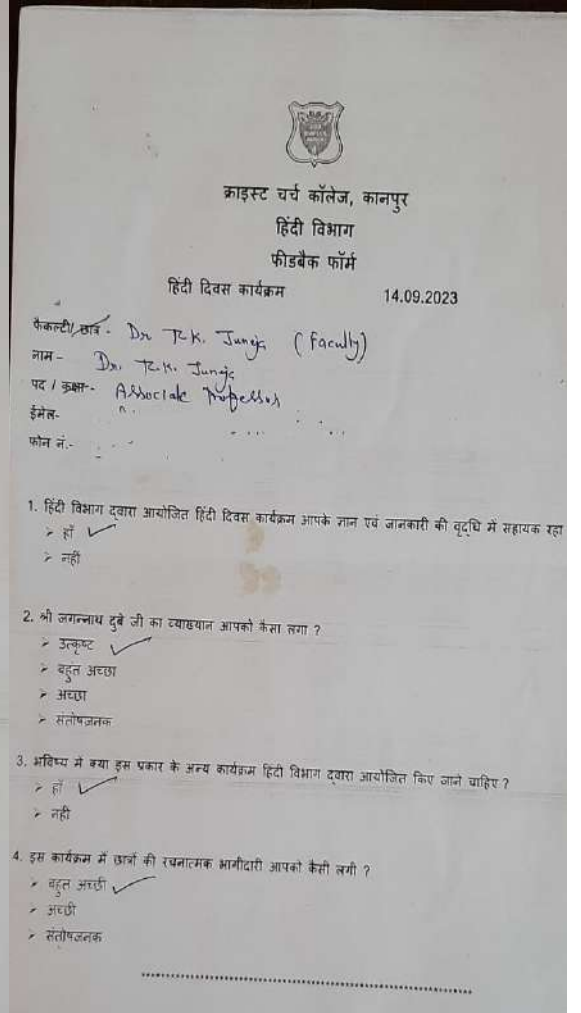 क्राइस्ट चर्च कॉलेज, कानपुर
हिंदी विभाग
फीडबैक फॉर्म
हिंदी दिवस कार्यक्रम 14.09.2023
फैकल्टी/ छात्र - Dr R.K. Juneja (Faculty)
नाम - Dr. R.K. Juneja
पद / कक्षा- Associate Professor
ईमेल-
फोन नं.-
1. हिंदी विभाग द्वारा आयोजित हिंदी दिवस कार्यक्रम आपके ज्ञान एवं जानकारी की वृद्धि में सहायक रहा
➢ हाँ ✓
➢ नहीं
2. श्री जगन्नाथ दुबे जी का व्याख्यान आपको कैसा लगा ?
➢ उत्कृष्ट ✓
➢ बहुत अच्छा
➢ अच्छा
➢ संतोषजनक
3. भविष्य में क्या इस प्रकार के अन्य कार्यक्रम हिंदी विभाग द्वारा आयोजित किए जाने चाहिए ?
➢ हाँ ✓
➢ नहीं
4. इस कार्यक्रम में छात्रों की रचनात्मक भागीदारी आपको कैसी लगी ?
➢ बहुत अच्छी ✓
➢ अच्छी
➢ संतोषजनक